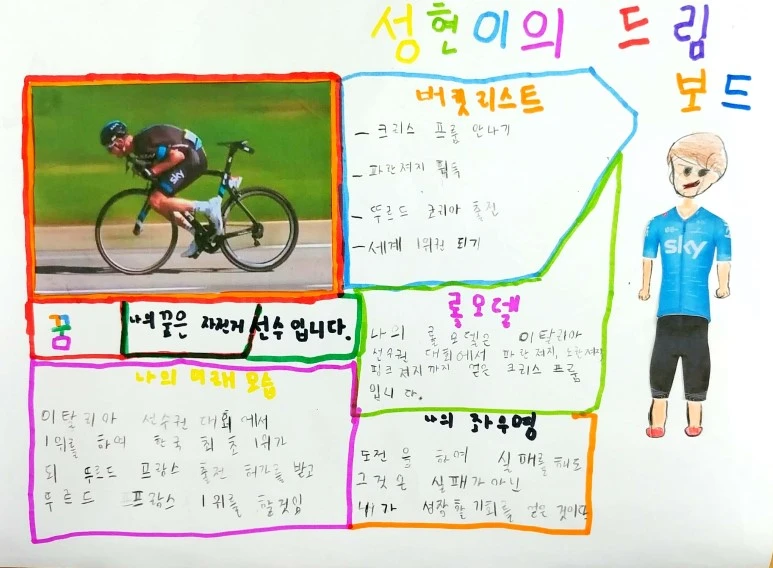 성현이의 드림
보드
버킷리스트
- 크리스 프룸 만나기
- 파란져지 획득
- 뚜르드 코리아 출전
- 세계 1위권 되기
sky
sky
꿈
나의 꿈은 자전거 선수 입니다.
롤모델
나의 롤모델은 이탈리아
선수권 대회에서 파란져지, 노란져지
핑크져지까지 얻은 크리스 프룸
입니다.
나의 미래 모습
이탈리아 선수권 대회에서
1위를 하여 한국 최초 1위가
되 뚜르드 프랑스 출전 허가를 받고
뚜르드 프랑스 1위를 할것임
나의 좌우명
도전을 하여 실패를 해도
그것은 실패가 아닌
내가 성장할 기회를 얻은 것이다